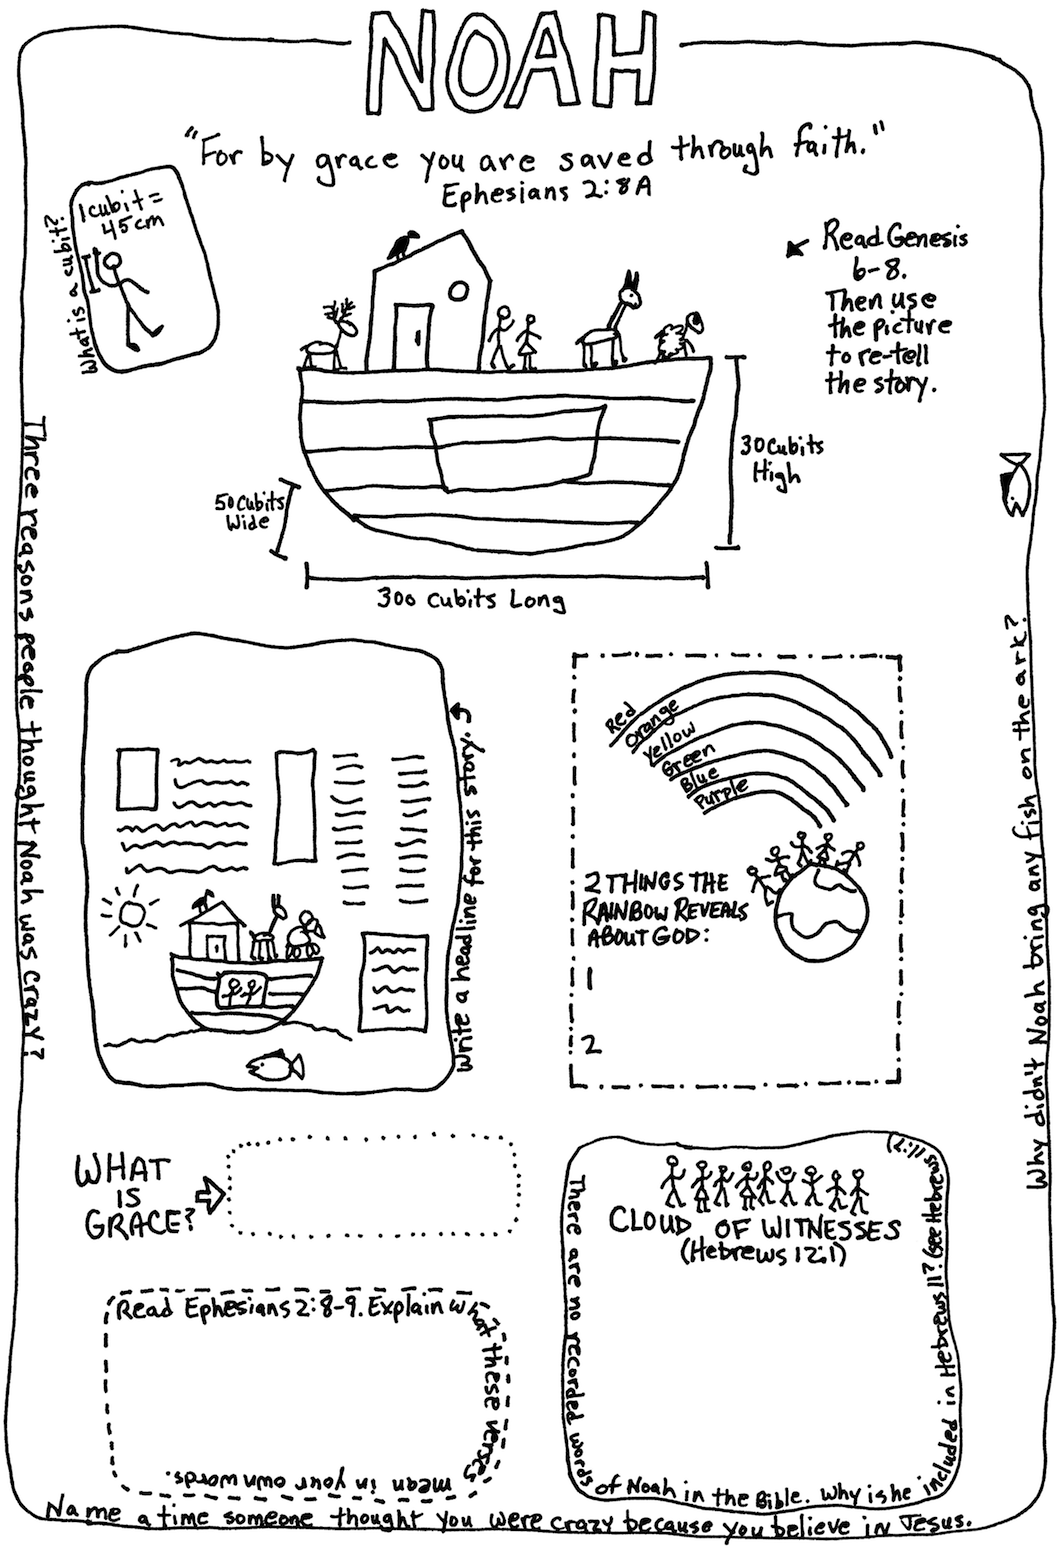 NOAH
"For by grace you are saved through faith."
Ephesians 2:8A
What is a cubit?
1 cubit =
45cm
Read Genesis
6-8.
Then use
the picture
to re-tell
the story.
30 Cubits
High
50 Cubits
Wide
300 Cubits Long
Three reasons people thought Noah was crazy?
Why didn't Noah bring any fish on the ark?
Write a headline for this story.
Red
Orange
Yellow
Green
Blue
Purple
2 THINGS THE
RAINBOW REVEALS
ABOUT GOD:
1
2
WHAT
IS
GRACE?
Read Ephesians 2:8-9. Explain what these verses mean in your own words.
CLOUD OF WITNESSES
(Hebrews 12:1)
There are no recorded words of Noah in the Bible. Why is he included in Hebrews 11? (see Hebrews 11:7)
Name a time someone thought you were crazy because you believe in Jesus.